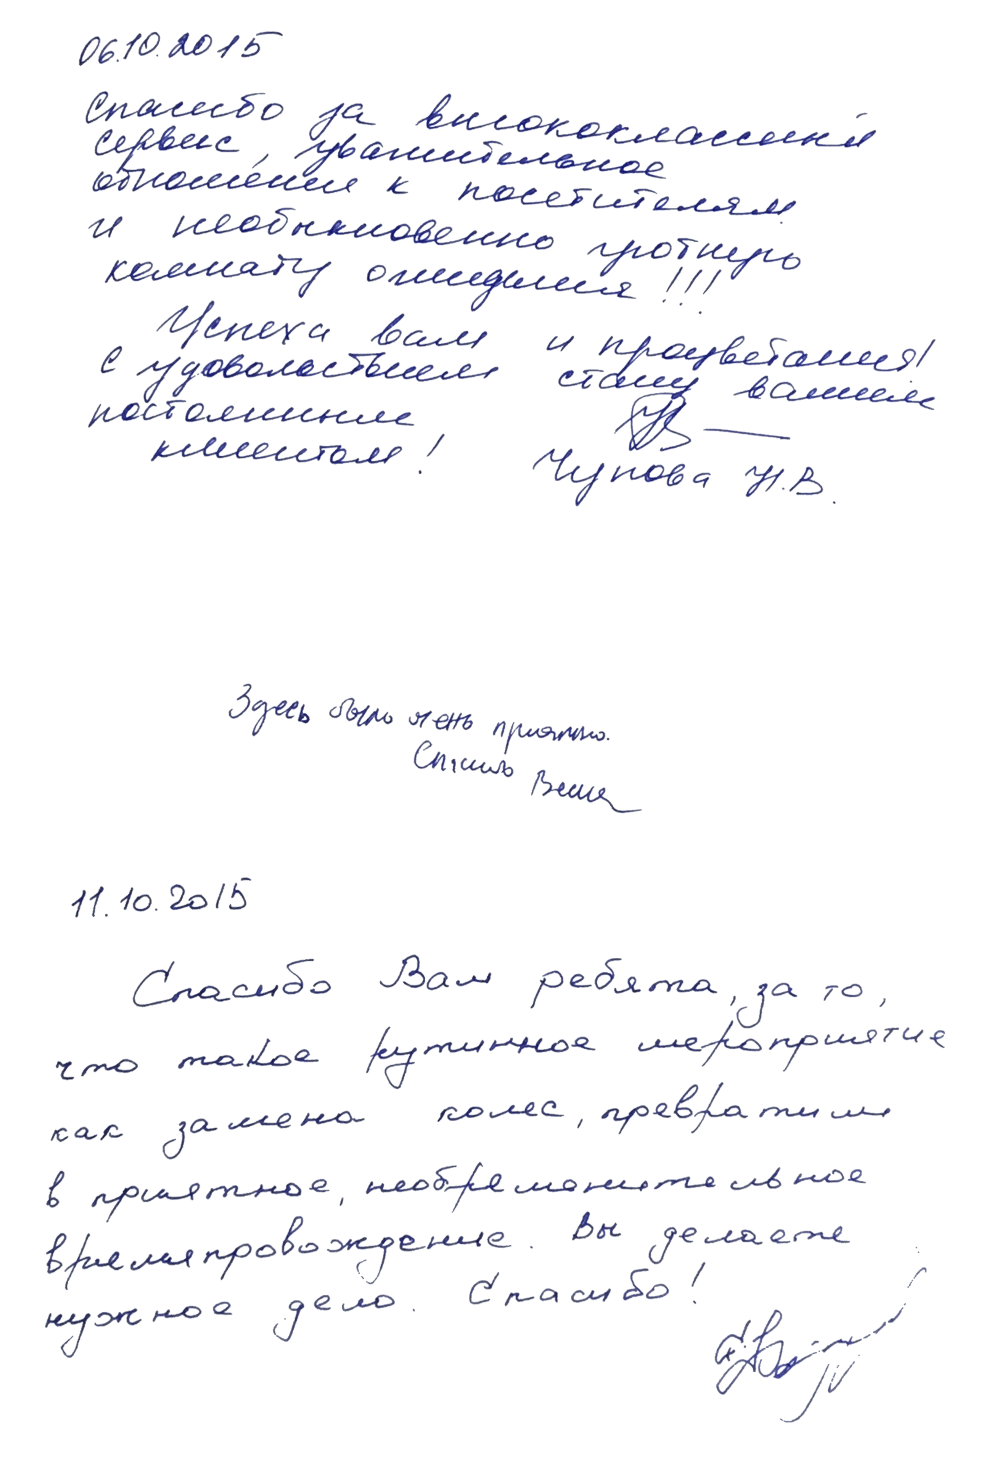 06.10.2015
Спасибо за высококлассный
сервис, уважительное
отношение к посетителям
и необыкновенно уютную
комнату ожидания!!!
Успеха вам и процветания!
С удовольствием стану вашим
постоянным
клиентом!
Чупова Н.В.
Здесь было очень приятно.
Спасибо
11.10.2015
Спасибо Вам ребята, за то,
что такое рутинное мероприятие
как замена колес, превратили
в приятное, необременительное
времяпровождение. Вы делаете
нужное дело. Спасибо!